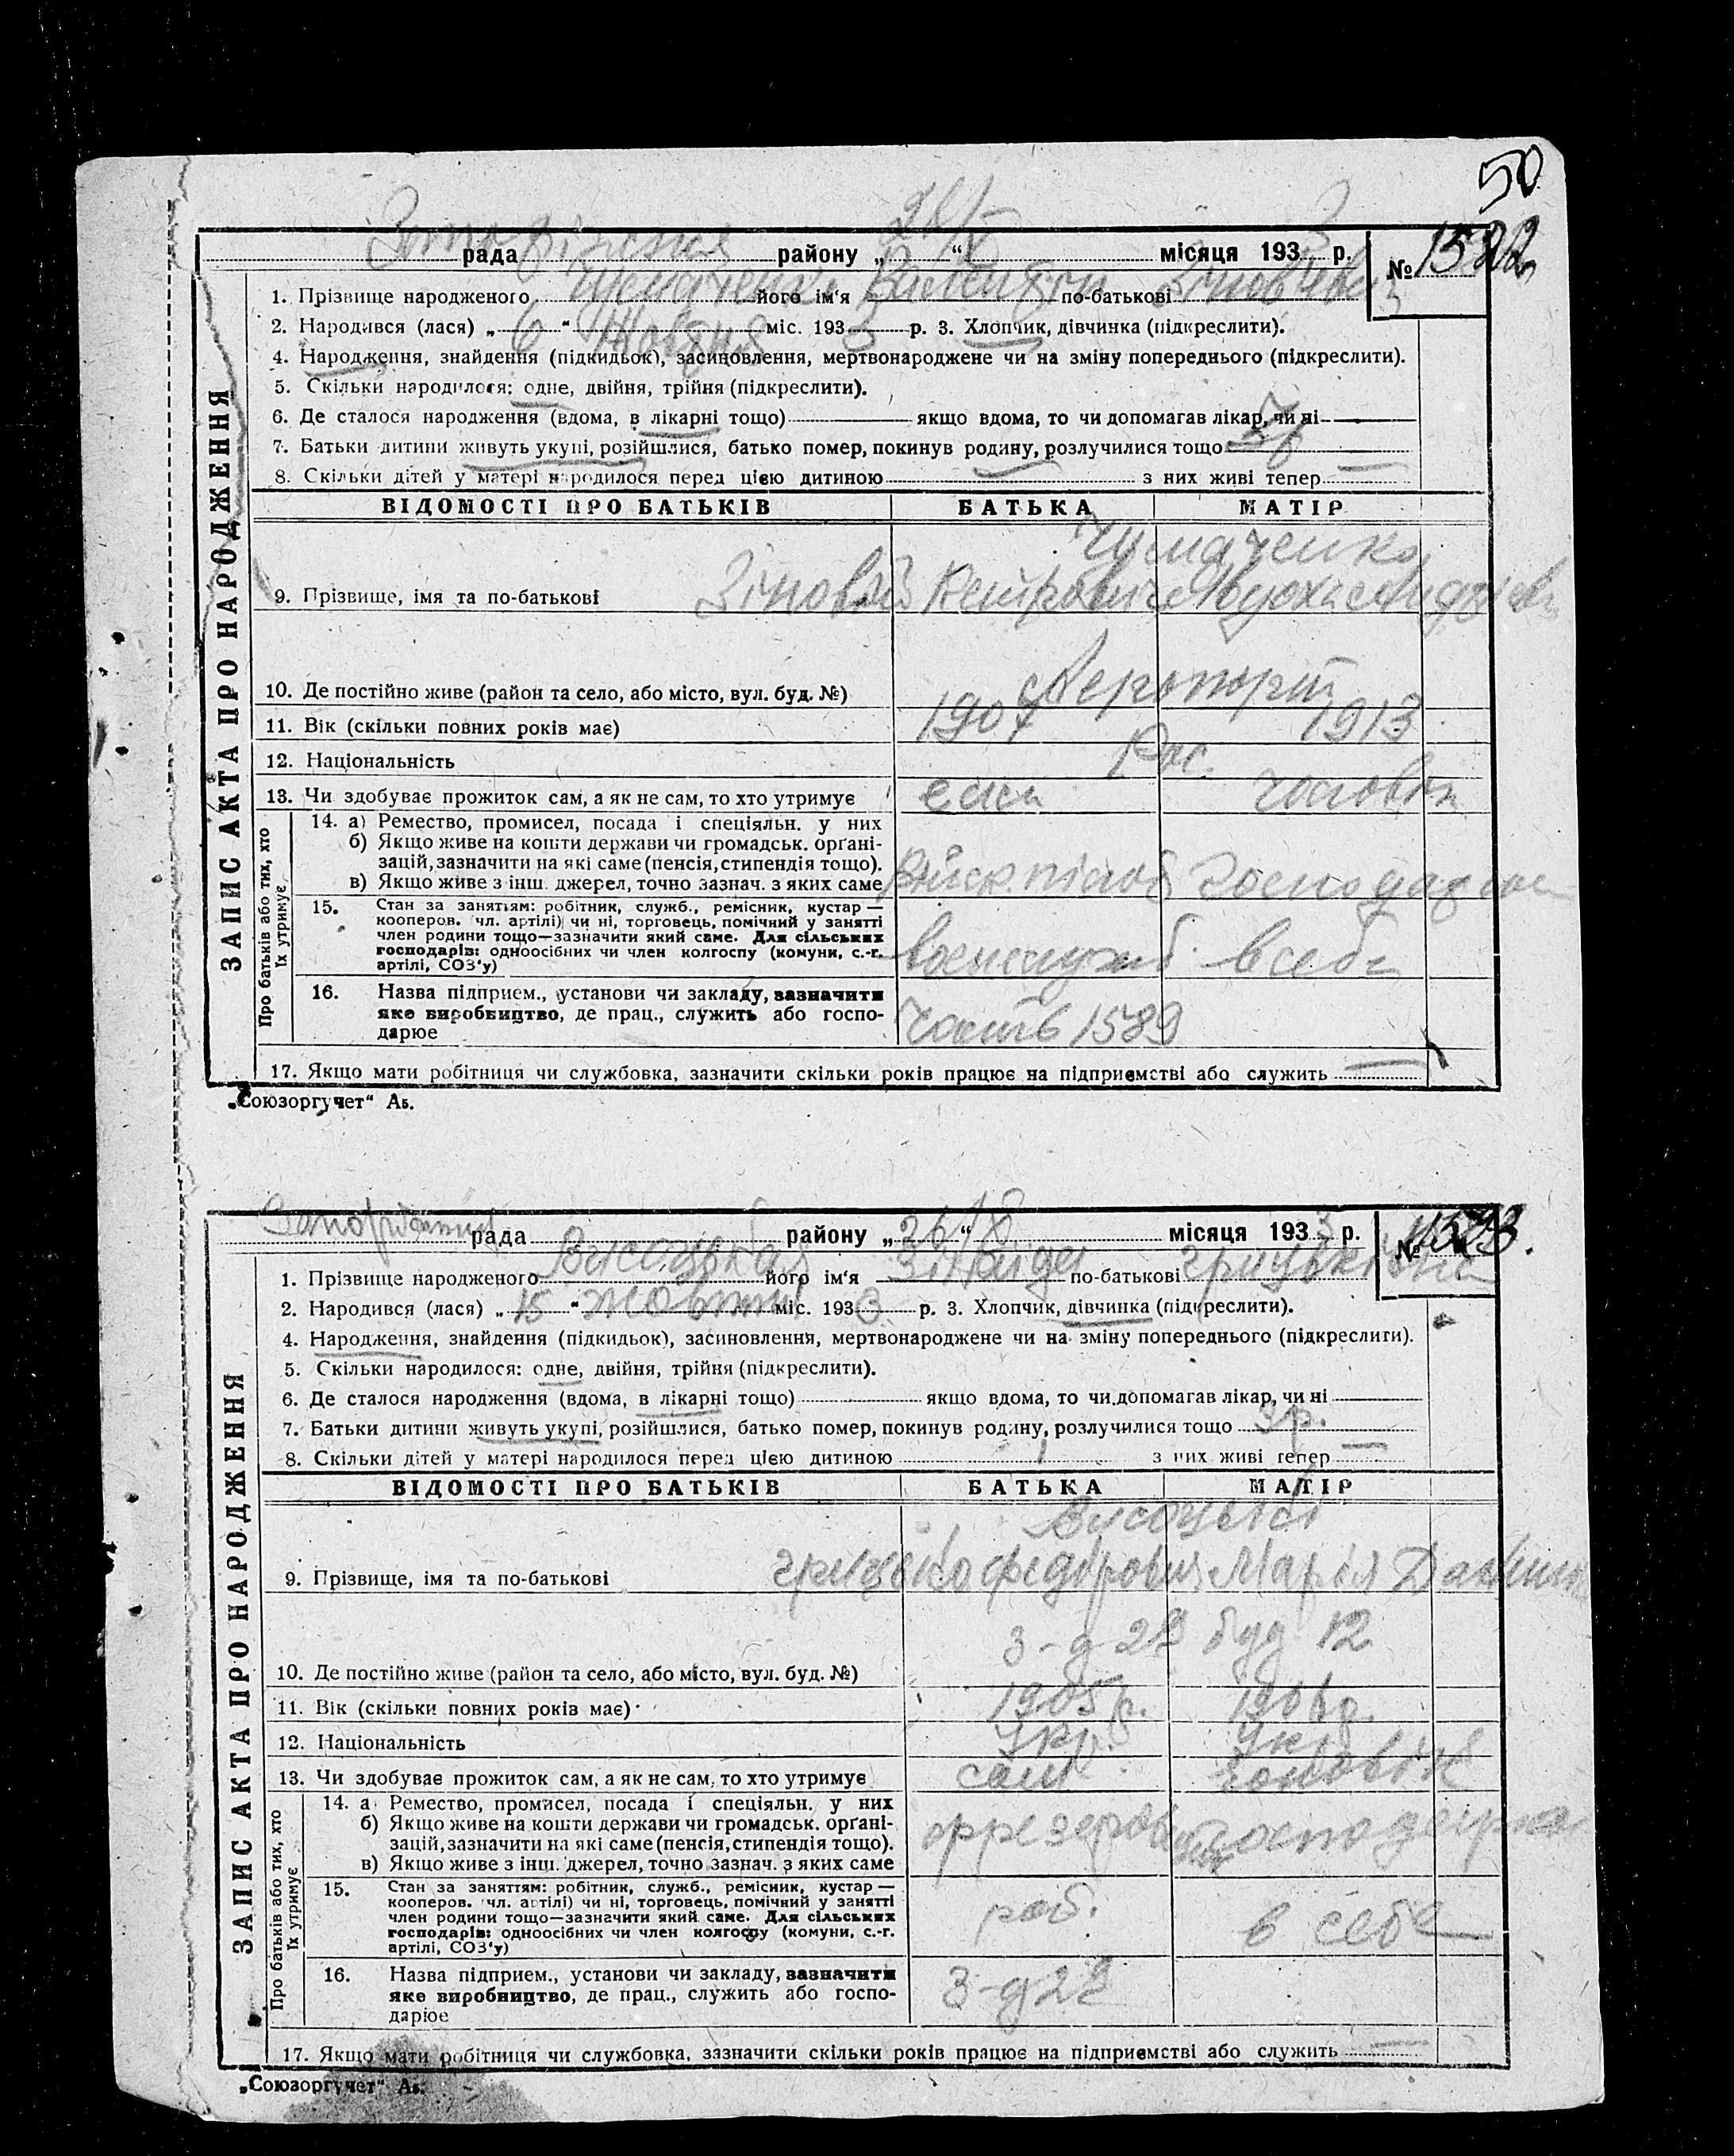 50
рада району „ 26/X “ місяця 1933 р. № 1522
1. Прізвище народженого його ім'я Валентин по-батькові Зіновієв
2. Народився (лася) „ 6 “ Жовтня міс. 1933 р. 3. Хлопчик, дівчинка (підкреслити).
4. Народження, знайдення (підкидьок), засиновлення, мертвонароджене чи на зміну попереднього (підкреслити).
5. Скільки народилося: одне, двійня, трійня (підкреслити).
6. Де сталося народження (вдома, в лікарні тощо) якщо вдома, то чи допомагав лікар, чи ні
7. Батьки дитини живуть укупі, розійшлися, батько помер, покинув родину, розлучилися тощо
8. Скільки дітей у матері народилося перед цією дитиною з них живі тепер
ЗАПИС АКТА ПРО НАРОДЖЕННЯ
ВІДОМОСТІ ПРО БАТЬКІВ БАТЬКА МАТІР
Чумаченко
9. Прізвище, імя та по-батькові Зіновій Петрович
10. Де постійно живе (район та село, або місто, вул. буд. №) Аеропорт
11. Вік (скільки повних років має) 1907 1913
12. Національність Рос.
13. Чи здобуває прожиток сам, а як не сам, то хто утримує сам чоловік
Про батьків або тих, хто їх утримує
14. а) Ремество, промисел, посада і спеціяльн. у них
б) Якщо живе на кошти держави чи громадськ. органі-
зацій, зазначити на які саме (пенсія, стипендія тощо).
в) Якщо живе з інш. джерел, точно зазнач. з яких саме
15. Стан за заняттям: робітник, служб., ремісник, кустар —
кооперов. чл. артілі) чи ні, торговець, помічний у занятті
член родини тощо—зазначити який саме. Для сільських
господарів: одноосібних чи член колгоспу (комуни, с.-г.
артілі, СОЗ'у)
військслужб. в себе
16. Назва підприєм., установи чи закладу, зазначити
яке виробництво, де прац., служить або госпо-
дарює
Часть 1589
17. Якщо мати робітниця чи службовка, зазначити скільки років працює на підприємстві або служить
„Союзоргучет“ Аб.
рада району „ 26/X “ місяця 1933 р. № 1523.
1. Прізвище народженого Висоцька його ім'я Зінаїда по-батькові Грицьківна
2. Народився (лася) „ 15 “ жовтня міс. 1933 р. 3. Хлопчик, дівчинка (підкреслити).
4. Народження, знайдення (підкидьок), засиновлення, мертвонароджене чи на зміну попереднього (підкреслити).
5. Скільки народилося: одне, двійня, трійня (підкреслити).
6. Де сталося народження (вдома, в лікарні тощо) якщо вдома, то чи допомагав лікар, чи ні
7. Батьки дитини живуть укупі, розійшлися, батько помер, покинув родину, розлучилися тощо 3 р.
8. Скільки дітей у матері народилося перед цією дитиною 1 з них живі тепер
ЗАПИС АКТА ПРО НАРОДЖЕННЯ
ВІДОМОСТІ ПРО БАТЬКІВ БАТЬКА МАТІР
Висоцькі
9. Прізвище, імя та по-батькові Грицько Федорович Марія
3-д 29 буд 12
10. Де постійно живе (район та село, або місто, вул. буд. №)
11. Вік (скільки повних років має) 1905 р. 1906 р.
12. Національність Укр. Укр
13. Чи здобуває прожиток сам, а як не сам, то хто утримує сам чоловік
Про батьків або тих, хто їх утримує
14. а Ремество, промисел, посада і спеціяльн. у них
б) Якщо живе на кошти держави чи громадськ. органі-
зацій, зазначити на які саме (пенсія, стипендія тощо).
в) Якщо живе з інш. джерел, точно зазнач. з яких саме
15. Стан за заняттям: робітник, служб., ремісник, кустар —
кооперов. чл. артілі) чи ні, торговець, помічний у занятті
член родини тощо—зазначити який саме. Для сільських
господарів: одноосібних чи член колгоспу (комуни, с.-г.
артілі, СОЗ'у)
роб. в себе
16. Назва підприєм., установи чи закладу, зазначити
яке виробництво, де прац., служить або госпо-
дарює
3-д 29
17. Якщо мати робітниця чи службовка, зазначити скільки років працює на підприємстві або служить
„Союзоргучет“ Аб.